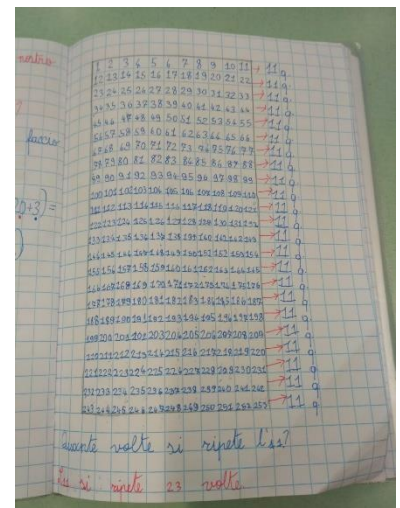 nostro
faccio
0+3)=
)
1 2 3 4 5 6 7 8 9 10 11 → 11 q
12 13 14 15 16 17 18 19 20 21 22 → 11 q
23 24 25 26 27 28 29 30 31 32 33 → 11 q
34 35 36 37 38 39 40 41 42 43 44 → 11 q
45 46 47 48 49 50 51 52 53 54 55 → 11 q
56 57 58 59 60 61 62 63 64 65 66 → 11 q
67 68 69 70 71 72 73 74 75 76 77 → 11 q
78 79 80 81 82 83 84 85 86 87 88 → 11 q
89 90 91 92 93 94 95 96 97 98 99 → 11 q
100 101 102 103 104 105 106 107 108 109 110 → 11 q
111 112 113 114 115 116 117 118 119 120 121 → 11 q
122 123 124 125 126 127 128 129 130 131 132 → 11 q
133 134 135 136 137 138 139 140 141 142 143 → 11 q
144 145 146 147 148 149 150 151 152 153 154 → 11 q
155 156 157 158 159 160 161 162 163 164 165 → 11 q
166 167 168 169 170 171 172 173 174 175 176 → 11 q
177 178 179 180 181 182 183 184 185 186 187 → 11 q
188 189 190 191 192 193 194 195 196 197 198 → 11 q
199 200 201 202 203 204 205 206 207 208 209 → 11 q
210 211 212 213 214 215 216 217 218 219 220 → 11 q
221 222 223 224 225 226 227 228 229 230 231 → 11 q
232 233 234 235 236 237 238 239 240 241 242 → 11 q
243 244 245 246 247 248 249 250 251 252 253 → 11 q
Quante volte si ripete l'11?
L'11 si ripete 23 volte